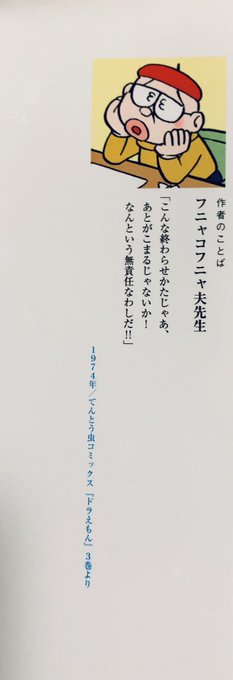 作者のことば
フニャコフニャ夫先生
「こんな終わらせかたじゃあ、
あとがこまるじゃないか！
なんという無責任なわしだ!!」
1974年／てんとう虫コミックス『ドラえもん』3巻より